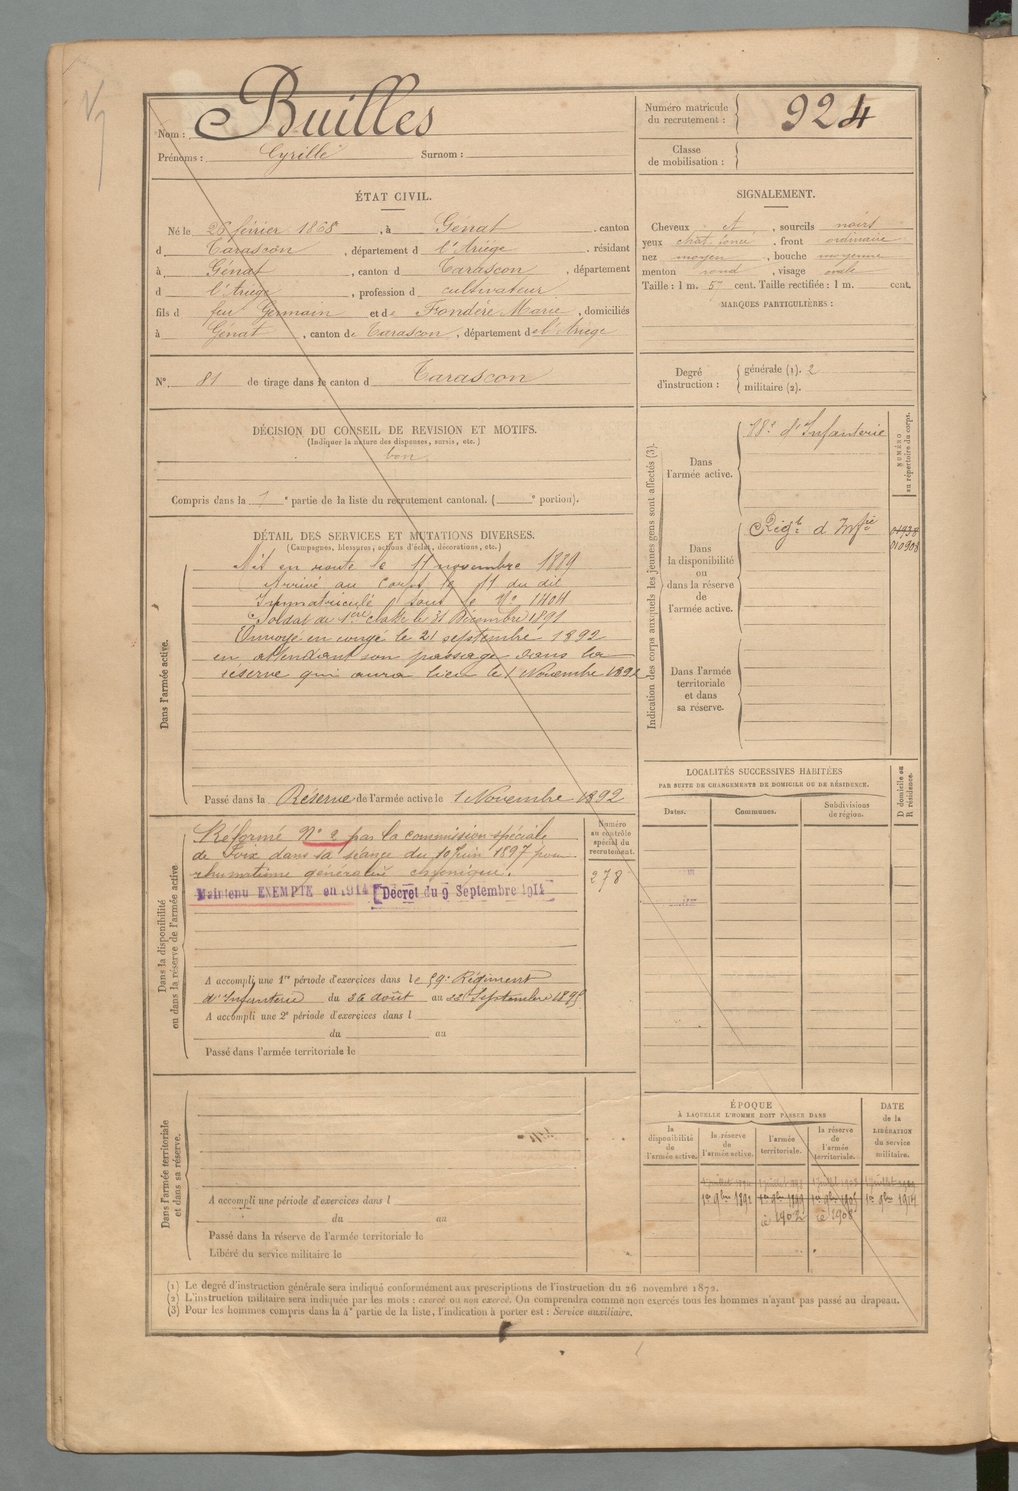 Nom : Builles
Prénoms : Cyrille Surnom :
Numéro matricule du recrutement : 924
Classe de mobilisation :
ÉTAT CIVIL.
Né le 26 février 1868, à Génat, canton
d Tarascon, département d l'Ariège, résidant
à Génat, canton d Tarascon, département
d l'Ariège, profession d cultivateur
fils d feu Germain et de Fondère Marie, domiciliés
à Génat, canton de Tarascon, département de l'Ariège
N° 81 de tirage dans le canton d Tarascon
SIGNALEMENT.
Cheveux et, sourcils noirs
yeux chat. foncé, front ordinaire
nez moyen, bouche moyenne
menton rond, visage ovale
Taille : 1 m. 57 cent. Taille rectifiée : 1 m. cent.
MARQUES PARTICULIÈRES :
Degré d'instruction : générale (1). 2
militaire (2).
DÉCISION DU CONSEIL DE REVISION ET MOTIFS.
(Indiquer la nature des dispenses, sursis, etc.)
bon
Compris dans la 1e partie de la liste du recrutement cantonal. ( e portion).
DÉTAIL DES SERVICES ET MUTATIONS DIVERSES.
(Campagnes, blessures, actions d'éclat, décorations, etc.)
Dans l'armée active.
Mis en route le 11 novembre 1889
Arrivé au corps le 11 du dit
Immatriculé sous le N° 1404
Soldat de 1ère classe le 31 Décembre 1891
Envoyé en congé le 21 septembre 1892
en attendant son passage dans la
réserve qui aura lieu le 1 Novembre 1892
Passé dans la Réserve de l'armée active le 1 Novembre 1892
Indication des corps auxquels les jeunes gens sont affectés (3).
NUMÉRO au répertoire du corps.
Dans l'armée active.
88e d'Infanterie
Dans la disponibilité ou dans la réserve de l'armée active.
Régt d'Infie
01938
010908
Dans l'armée territoriale et dans sa réserve.
LOCALITÉS SUCCESSIVES HABITÉES
PAR SUITE DE CHANGEMENTS DE DOMICILE OU DE RÉSIDENCE.
D domicile ou R résidence.
Dates. Communes. Subdivisions de région.
Dans la disponibilité ou dans la réserve de l'armée active
Réformé N° 2 par la commission spéciale
de Foix dans sa séance du 10 juin 1897 pour
rhumatisme généralisé chronique.
Maintenu EXEMPTÉ en 1914 [Décret du 9 Septembre 1914
Numéro au contrôle spécial du recrutement.
278
A accompli une 1re période d'exercices dans le 59e Régiment
d'Infanterie du 26 août au 22 Septembre 1895
A accompli une 2e période d'exercices dans l
du au
Passé dans l'armée territoriale le
Dans l'armée territoriale et dans sa réserve.
A accompli une période d'exercices dans l
du au
Passé dans la réserve de l'armée territoriale le
Libéré du service militaire le
ÉPOQUE
À LAQUELLE L'HOMME DOIT PASSER DANS
DATE de la LIBÉRATION du service militaire.
la disponibilité de l'armée active. la réserve de l'armée active. l'armée territoriale. la réserve de l'armée territoriale.
1er 9bre 1892 1er 9bre 1899 1er 9bre 1905 1er 9bre 1914
à 1902 à 1908
(1) Le degré d'instruction générale sera indiqué conformément aux prescriptions de l'instruction du 26 novembre 1872.
(2) L'instruction militaire sera indiquée par les mots : exercé ou non exercé. On comprendra comme non exercés tous les hommes n'ayant pas passé au drapeau.
(3) Pour les hommes compris dans la 4e partie de la liste, l'indication à porter est : Service auxiliaire.